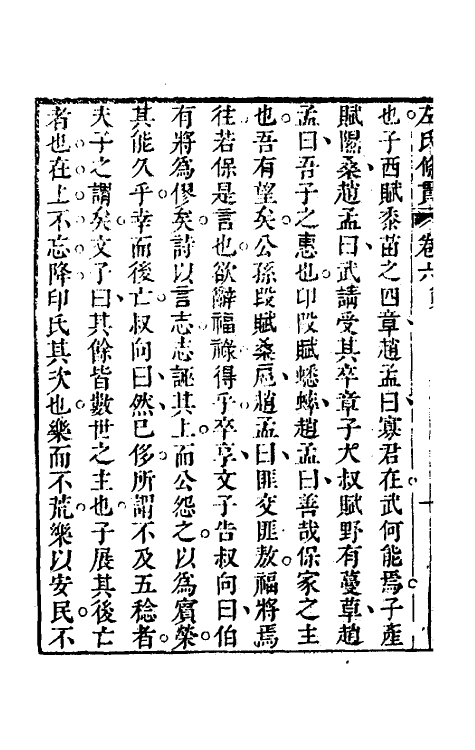 左氏條貫 卷六
也子西賦黍苗之四章趙孟曰寡君在武何能焉子產
賦隰桑趙孟曰武請受其卒章子大叔賦野有蔓草趙
孟曰吾子之惠也印段賦蟋蟀趙孟曰善哉保家之主
也吾有望矣公孫段賦桑扈趙孟曰匪交匪敖福將焉
往若保是言也欲辭福祿得乎卒享文子告叔向曰伯
有將為僇矣詩以言志志誣其上而公怨之以為賓榮
其能久乎幸而後亡叔向曰然已侈所謂不及五稔者
夫子之謂矣文子曰其餘皆數世之主也子展其後亡
者也在上不忘降印氏其次也樂而不荒樂以安民不